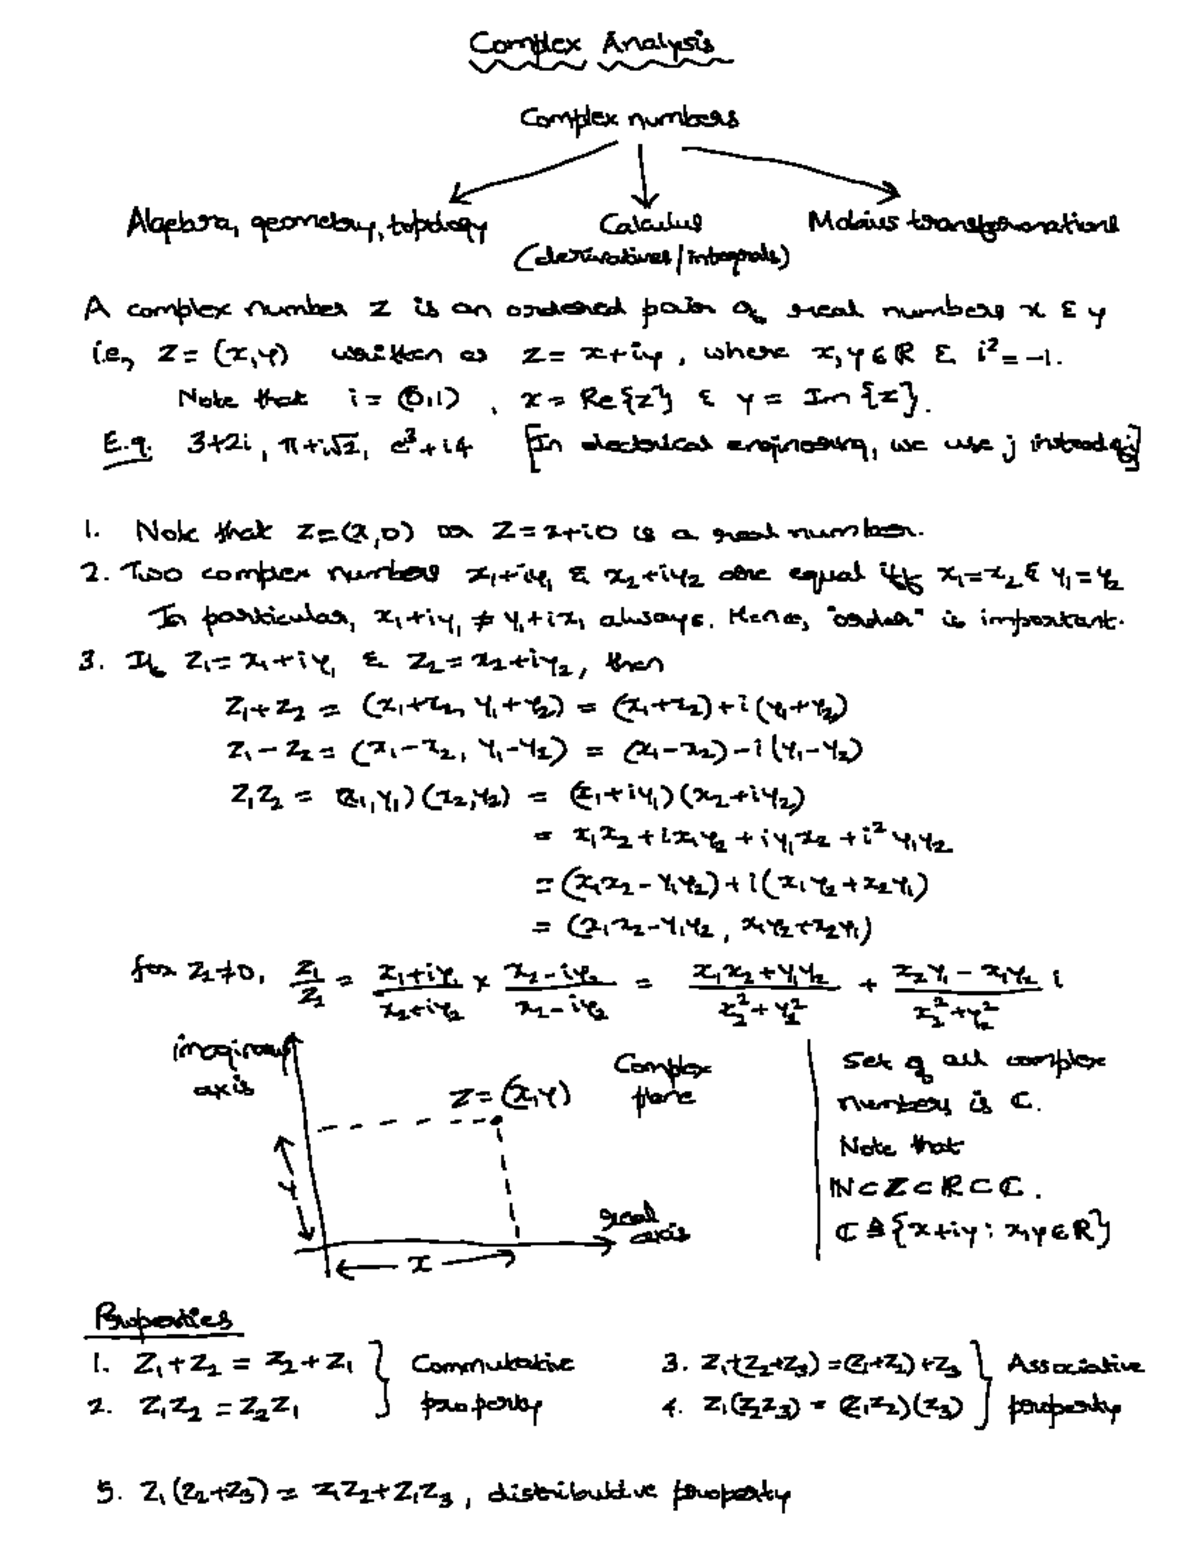 Complex Analysis
Complex numbers
Algebra, geometry, topology
Calculus
(derivatives/integrals)
Mobius transformations
A complex number z is an ordered pair of real numbers x & y
i.e., z = (x,y) written as z = x+iy, where x,y ∈ ℝ & i² = -1.
Note that i = (0,1), x = Re{z} & y = Im{z}.
E.g. 3+2i, π+i√2, e³+i4 [In electrical engineering, we use j instead of i]
1. Note that z=(x,0) or z=x+i0 is a real number.
2. Two complex numbers x₁+iy₁ & x₂+iy₂ are equal iff x₁=x₂ & y₁=y₂
In particular, x₁+iy₁ ≠ y₁+ix₁ always. Hence, "order" is important.
3. If z₁=x₁+iy₁ & z₂=x₂+iy₂, then
z₁+z₂ = (x₁+x₂, y₁+y₂) = (x₁+x₂)+i(y₁+y₂)
z₁-z₂ = (x₁-x₂, y₁-y₂) = (x₁-x₂)-i(y₁-y₂)
z₁z₂ = (x₁,y₁)(x₂,y₂) = (x₁+iy₁)(x₂+iy₂)
= x₁x₂+ix₁y₂+iy₁x₂+i²y₁y₂
= (x₁x₂-y₁y₂)+i(x₁y₂+x₂y₁)
= (x₁x₂-y₁y₂, x₁y₂+x₂y₁)
for z₂≠0, z₁/z₂ = (x₁+iy₁)/(x₂+iy₂) × (x₂-iy₂)/(x₂-iy₂) = (x₁x₂+y₁y₂)/(x₂²+y₂²) + (x₂y₁-x₁y₂)/(x₂²+y₂²) i
imaginary
axis
z=(x,y)
Complex
plane
y
x
real
axis
Set of all complex
numbers is ℂ.
Note that
ℕ⊂ℤ⊂ℝ⊂ℂ.
ℂ ≜ {x+iy : x,y∈ℝ}
Properties
1. z₁+z₂ = z₂+z₁
2. z₁z₂ = z₂z₁
Commutative
property
3. z₁+(z₂+z₃) = (z₁+z₂)+z₃
4. z₁(z₂z₃) = (z₁z₂)(z₃)
Associative
property
5. z₁(z₂+z₃) = z₁z₂+z₁z₃, distributive property